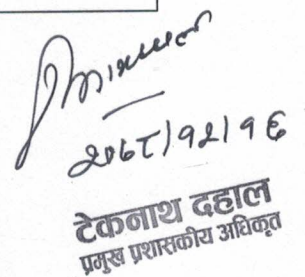 २०६८/१२/१६
टेकनाथ दहाल
प्रमुख प्रशासकीय अधिकृत